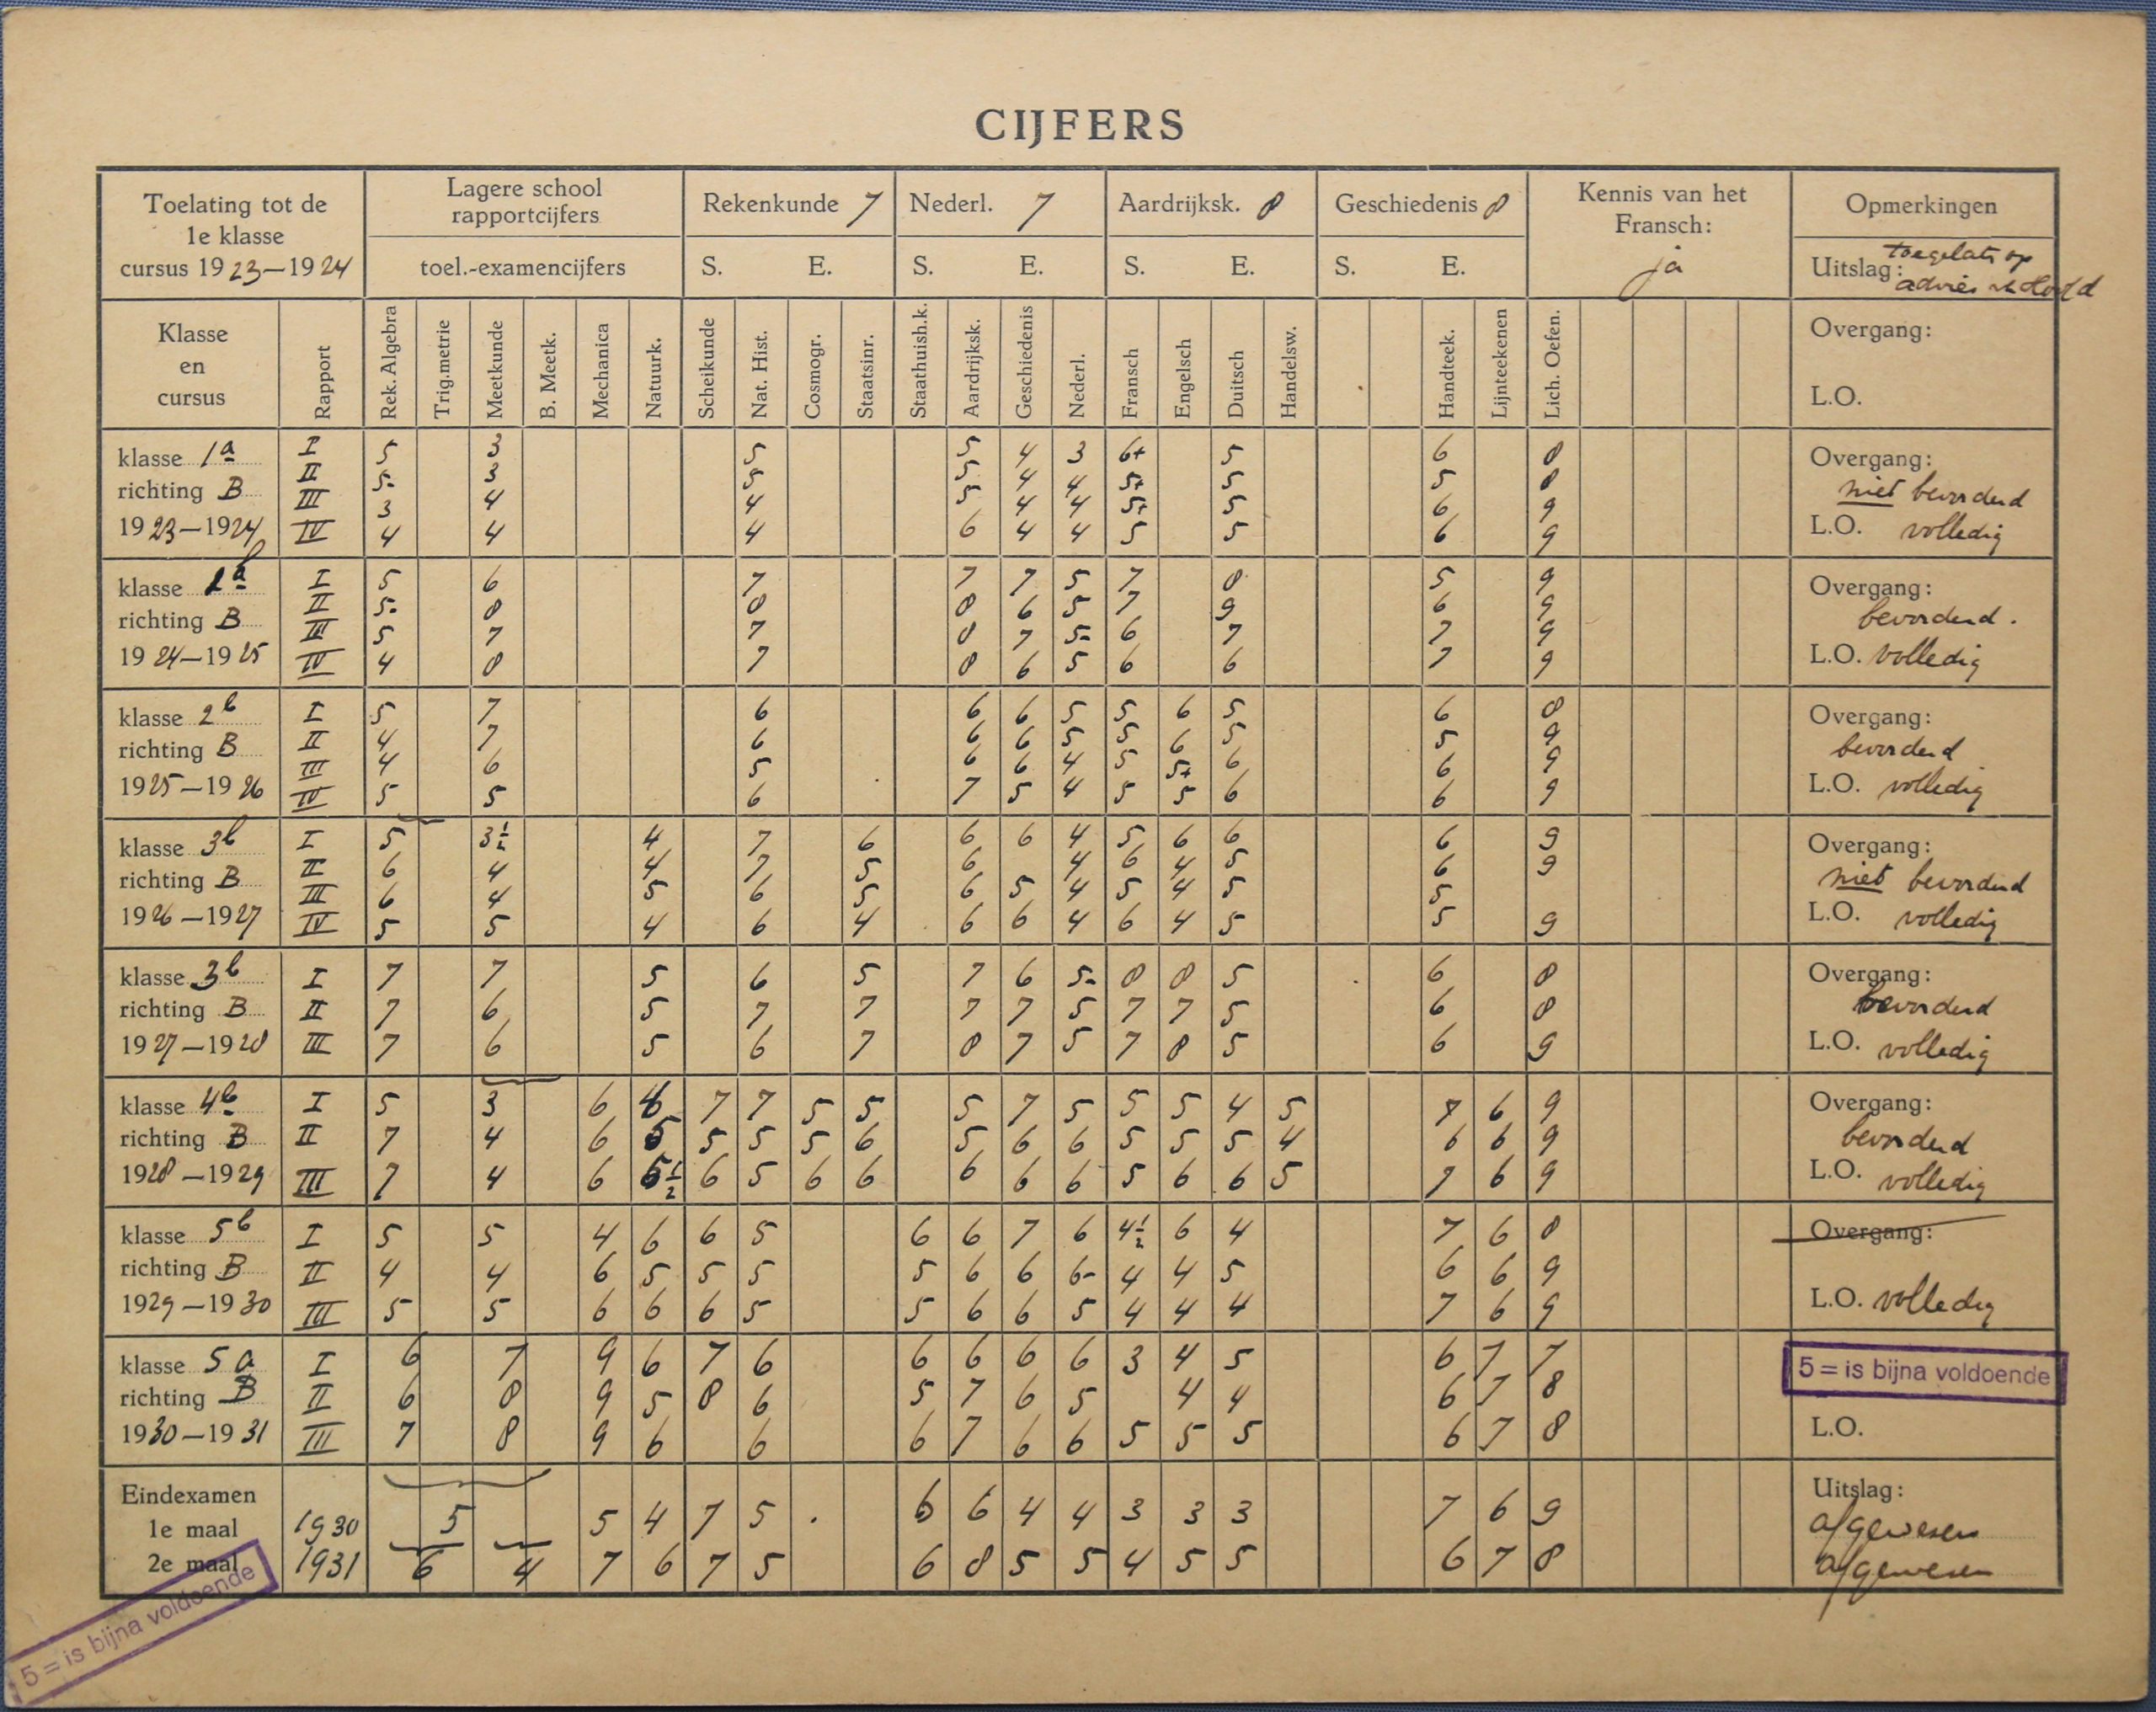 CIJFERS
Toelating tot de
1e klasse
cursus 1923—1924
Lagere school
rapportcijfers
toel.-examencijfers
Rekenkunde 7
S. E.
Nederl. 7
S. E.
Aardrijksk. 8
S. E.
Geschiedenis 8
S. E.
Kennis van het
Fransch:
ja
Opmerkingen
Uitslag: toegelat. op
advies v/h Hoofd
Klasse
en
cursus
Rapport
Rek. Algebra
Trig.metrie
Meetkunde
B. Meetk.
Mechanica
Natuurk.
Scheikunde
Nat. Hist.
Cosmogr.
Staatsinr.
Staathuish.k.
Aardrijksk.
Geschiedenis
Nederl.
Fransch
Engelsch
Duitsch
Handelsw.
Handteek.
Lijnteekenen
Lich. Oefen.
Overgang:
L.O.
klasse 1a
richting B
1923—1924
I 5 3 5 5 4 3 6+ 5 6 8
II 5- 3 5 5 4 4 5+ 5 5 8
III 3 4 4 5 4 4 5+ 5 6 9
IV 4 4 4 6 4 4 5 5 6 9
Overgang:
niet bevorderd
L.O. volledig
klasse 1b
richting B
1924—1925
I 5 6 7 7 7 5 7 8 5 9
II 5- 8 8 8 6 5 7 9 6 9
III 5 7 7 8 7 5- 6 7 7 9
IV 4 8 7 8 6 5 6 6 7 9
Overgang:
bevorderd.
L.O. volledig
klasse 2b
richting B
1925—1926
I 5 7 6 6 6 5 5 6 5 6 8
II 4 7 6 6 6 5 5 6 5 5 9
III 4 6 5 6 6 4 5 5+ 6 6 9
IV 5 5 6 7 5 4 5 5 6 6 9
Overgang:
bevorderd
L.O. volledig
klasse 3b
richting B
1926—1927
I 5 3½ 4 7 6 6 6 4 5 6 6 6 9
II 6 4 4 7 5 6 4 6 4 5 6 9
III 6 4 5 6 5 6 5 4 5 4 5 5
IV 5 5 4 6 4 6 6 4 6 4 5 5 9
Overgang:
niet bevorderd
L.O. volledig
klasse 3b
richting B
1927—1928
I 7 7 5 6 5 7 6 5- 8 8 5 6 8
II 7 6 5 7 7 7 7 5 7 7 5 6 8
III 7 6 5 6 7 8 7 5 7 8 5 6 9
Overgang:
bevorderd
L.O. volledig
klasse 4b
richting B
1928—1929
I 5 3 6 7 7 5 5 5 7 5 5 5 4 5 7 6 9
II 7 4 6 5 5 5 6 5 6 6 5 5 5 4 6 6 9
III 7 4 6 6 5 6 6 6 6 6 5 6 6 5 7 6 9
Overgang:
bevorderd
L.O. volledig
klasse 5b
richting B
1929—1930
I 5 5 4 6 6 5 6 6 7 6 4½ 6 4 7 6 8
II 4 4 6 5 5 5 5 6 6 6- 4 4 5 6 6 9
III 5 5 6 6 6 5 5 6 6 5 4 4 4 7 6 9
Overgang:
L.O. volledig
klasse 5a
richting B
1930—1931
I 6 7 9 6 7 6 6 6 6 6 3 4 5 6 7 7
II 6 8 9 5 8 6 5 7 6 5 4 4 6 7 8
III 7 8 9 6 6 6 7 6 6 5 5 5 6 7 8
5 = is bijna voldoende
L.O.
Eindexamen
1e maal 1930 5 5 4 7 5 6 6 4 4 3 3 3 7 6 9
2e maal 1931 6 4 7 6 7 5 6 8 5 5 4 5 5 6 7 8
Uitslag:
afgewezen
afgewezen
5 = is bijna voldoende